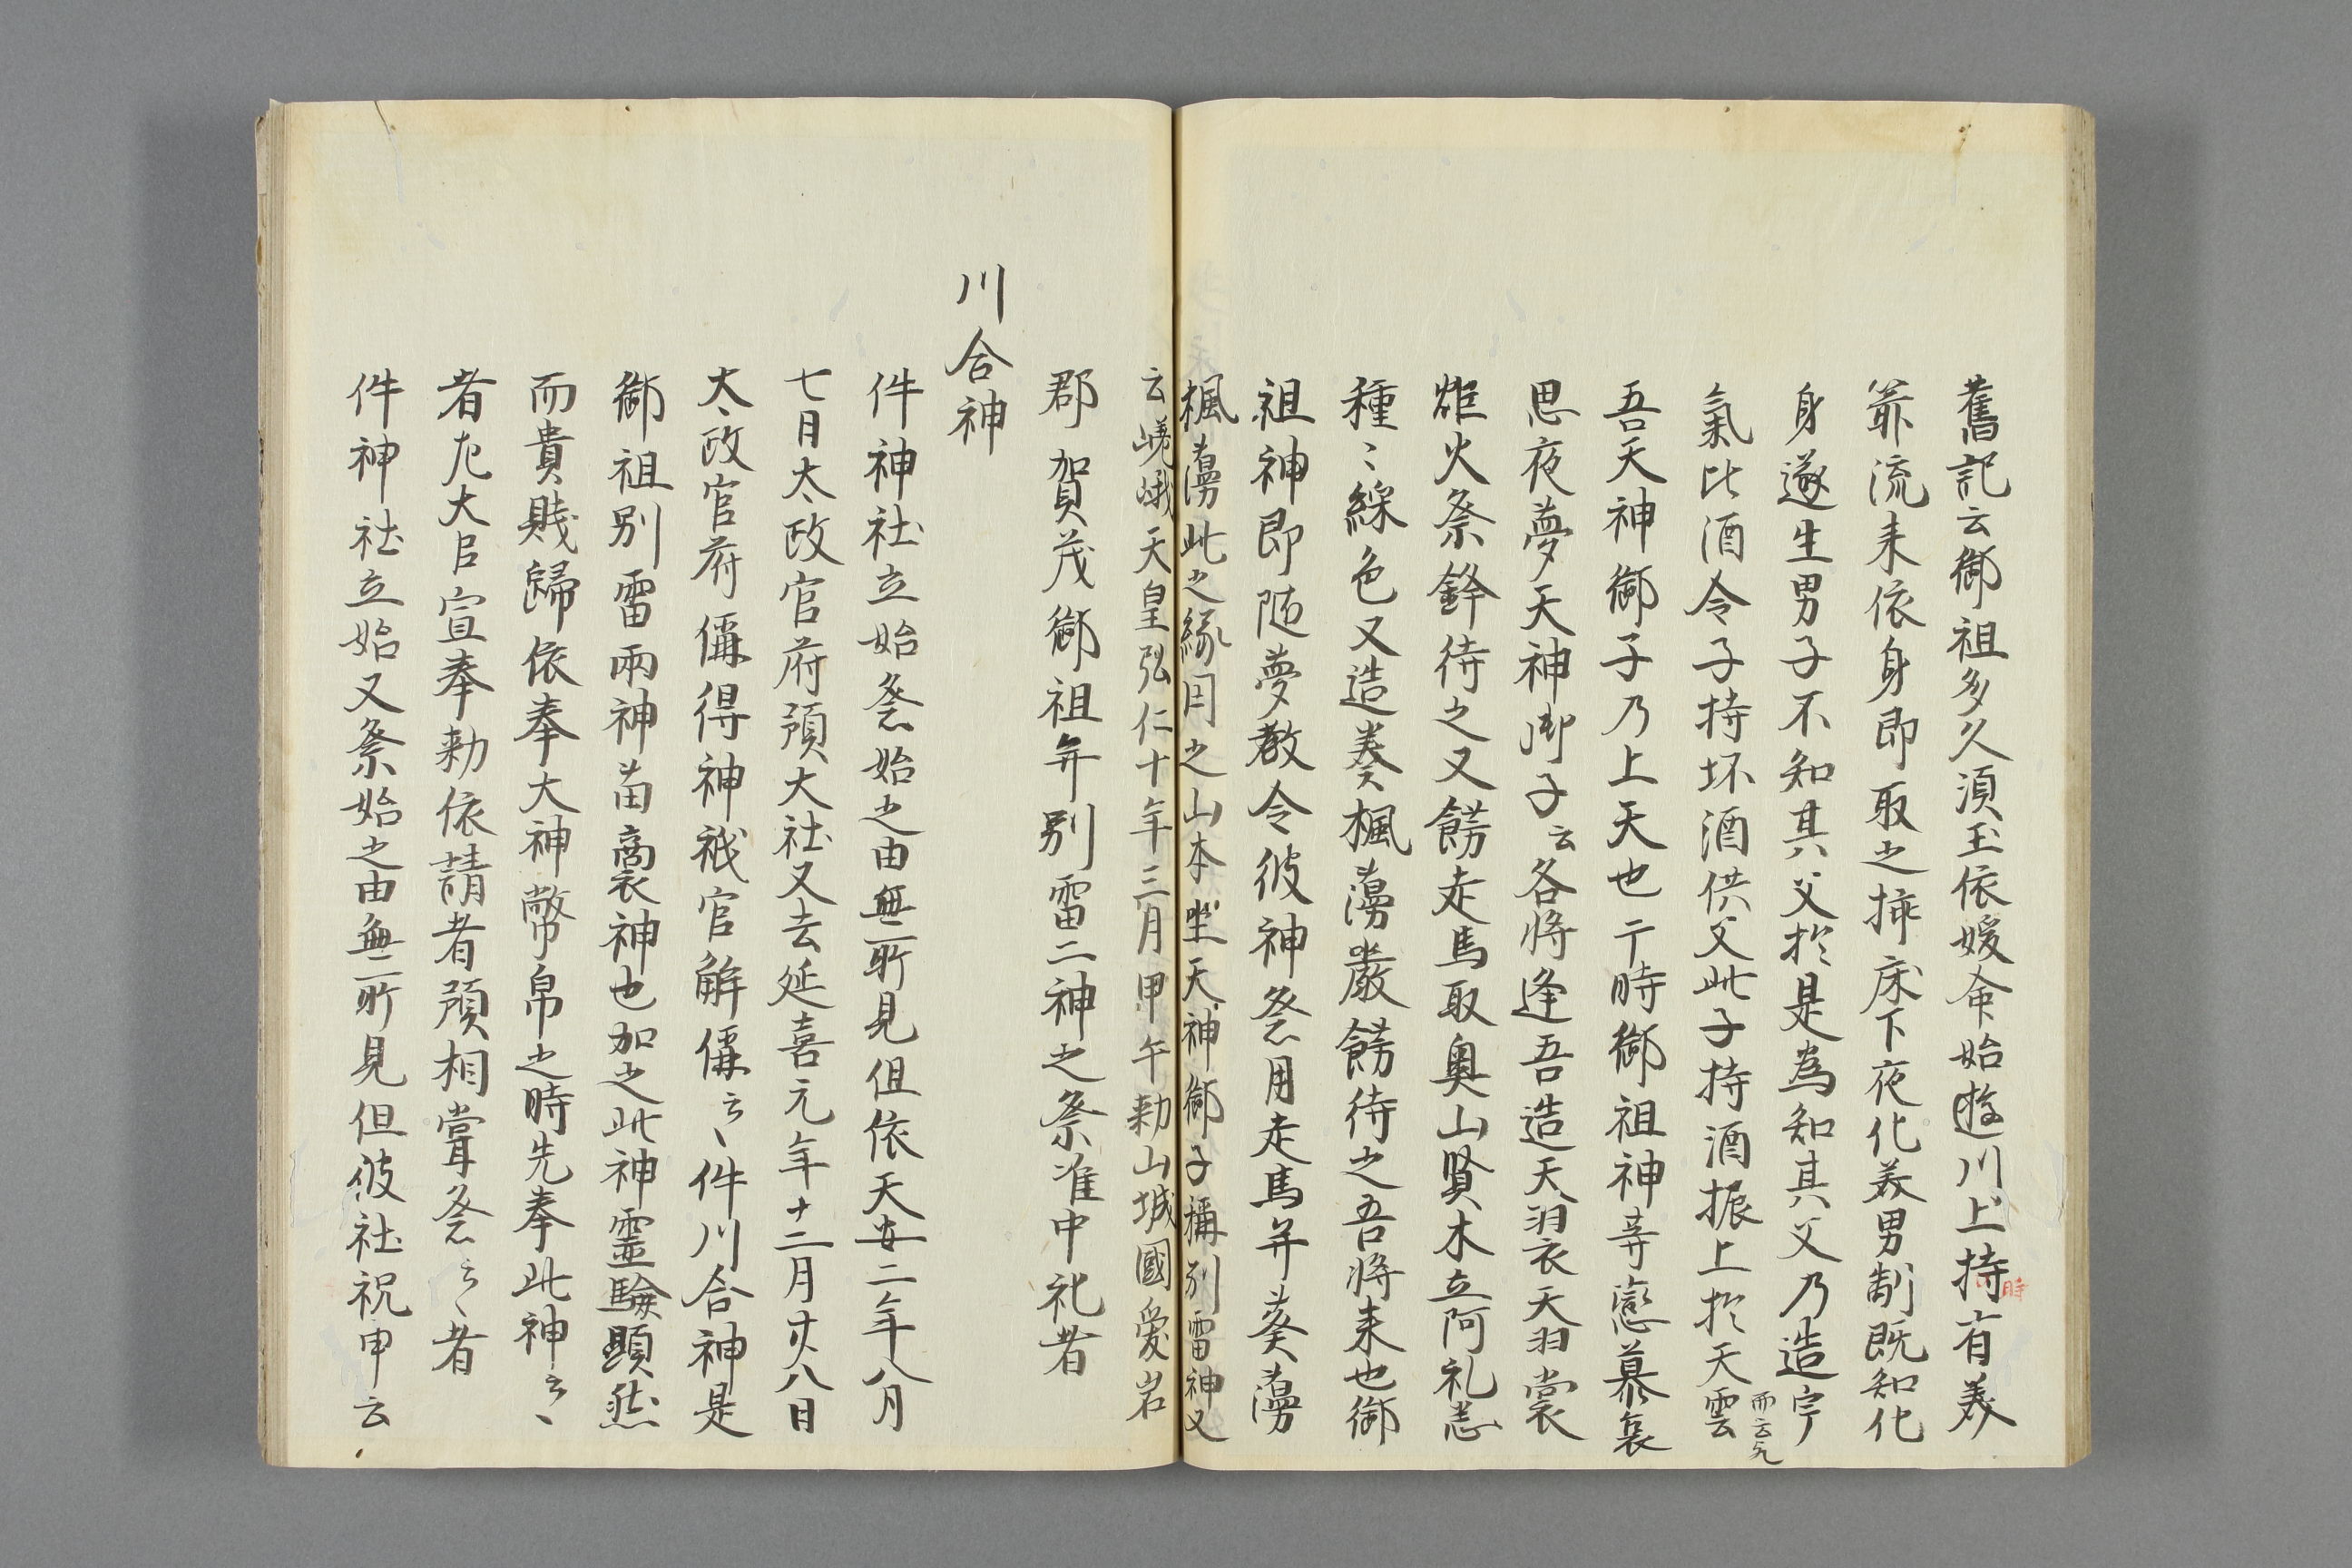 舊記云御祖多久湏玉依媛命始遊川上持有美
時
箭流来依身即取之揷床下夜化美男制既知化
身遂生男子不知其父於是為知其父乃造宇
氣比酒令子持坏酒供父此子持酒振上於天雲
而云兂
吾天神御子乃上天也于時御祖神等戀慕哀
思夜夢天神御子云各将逢吾造天羽衣天羽裳
炬火祭鉾待之又餝走馬取奥山賢木立阿礼悉
種〻綵色又造葵楓蘰嚴餝待之吾将来也御
祖神即随夢教令彼神祭用走馬并葵蘰
楓蘰此之縁因之山本坐天神御子稱別雷神又
云嵯峨天皇弘仁十年三月甲午勅山城國愛宕
郡賀茂御祖并別雷二神之祭准中祀者
川合神
件神社立始祭始之由無所見但依天安二年八月
七月太政官府預大社又去延喜元年十二月廿八日
太政官府偁得神祇官解偁云〻件川合神是
御祖別雷兩神苗裔神也加之此神霊驗顕然
而貴賎歸依奉大神幣帛之時先奉此神云〻
者左大臣宣奉勅依請者預相甞祭云〻者
件神社立始又祭始之由無所見但彼社祝申云